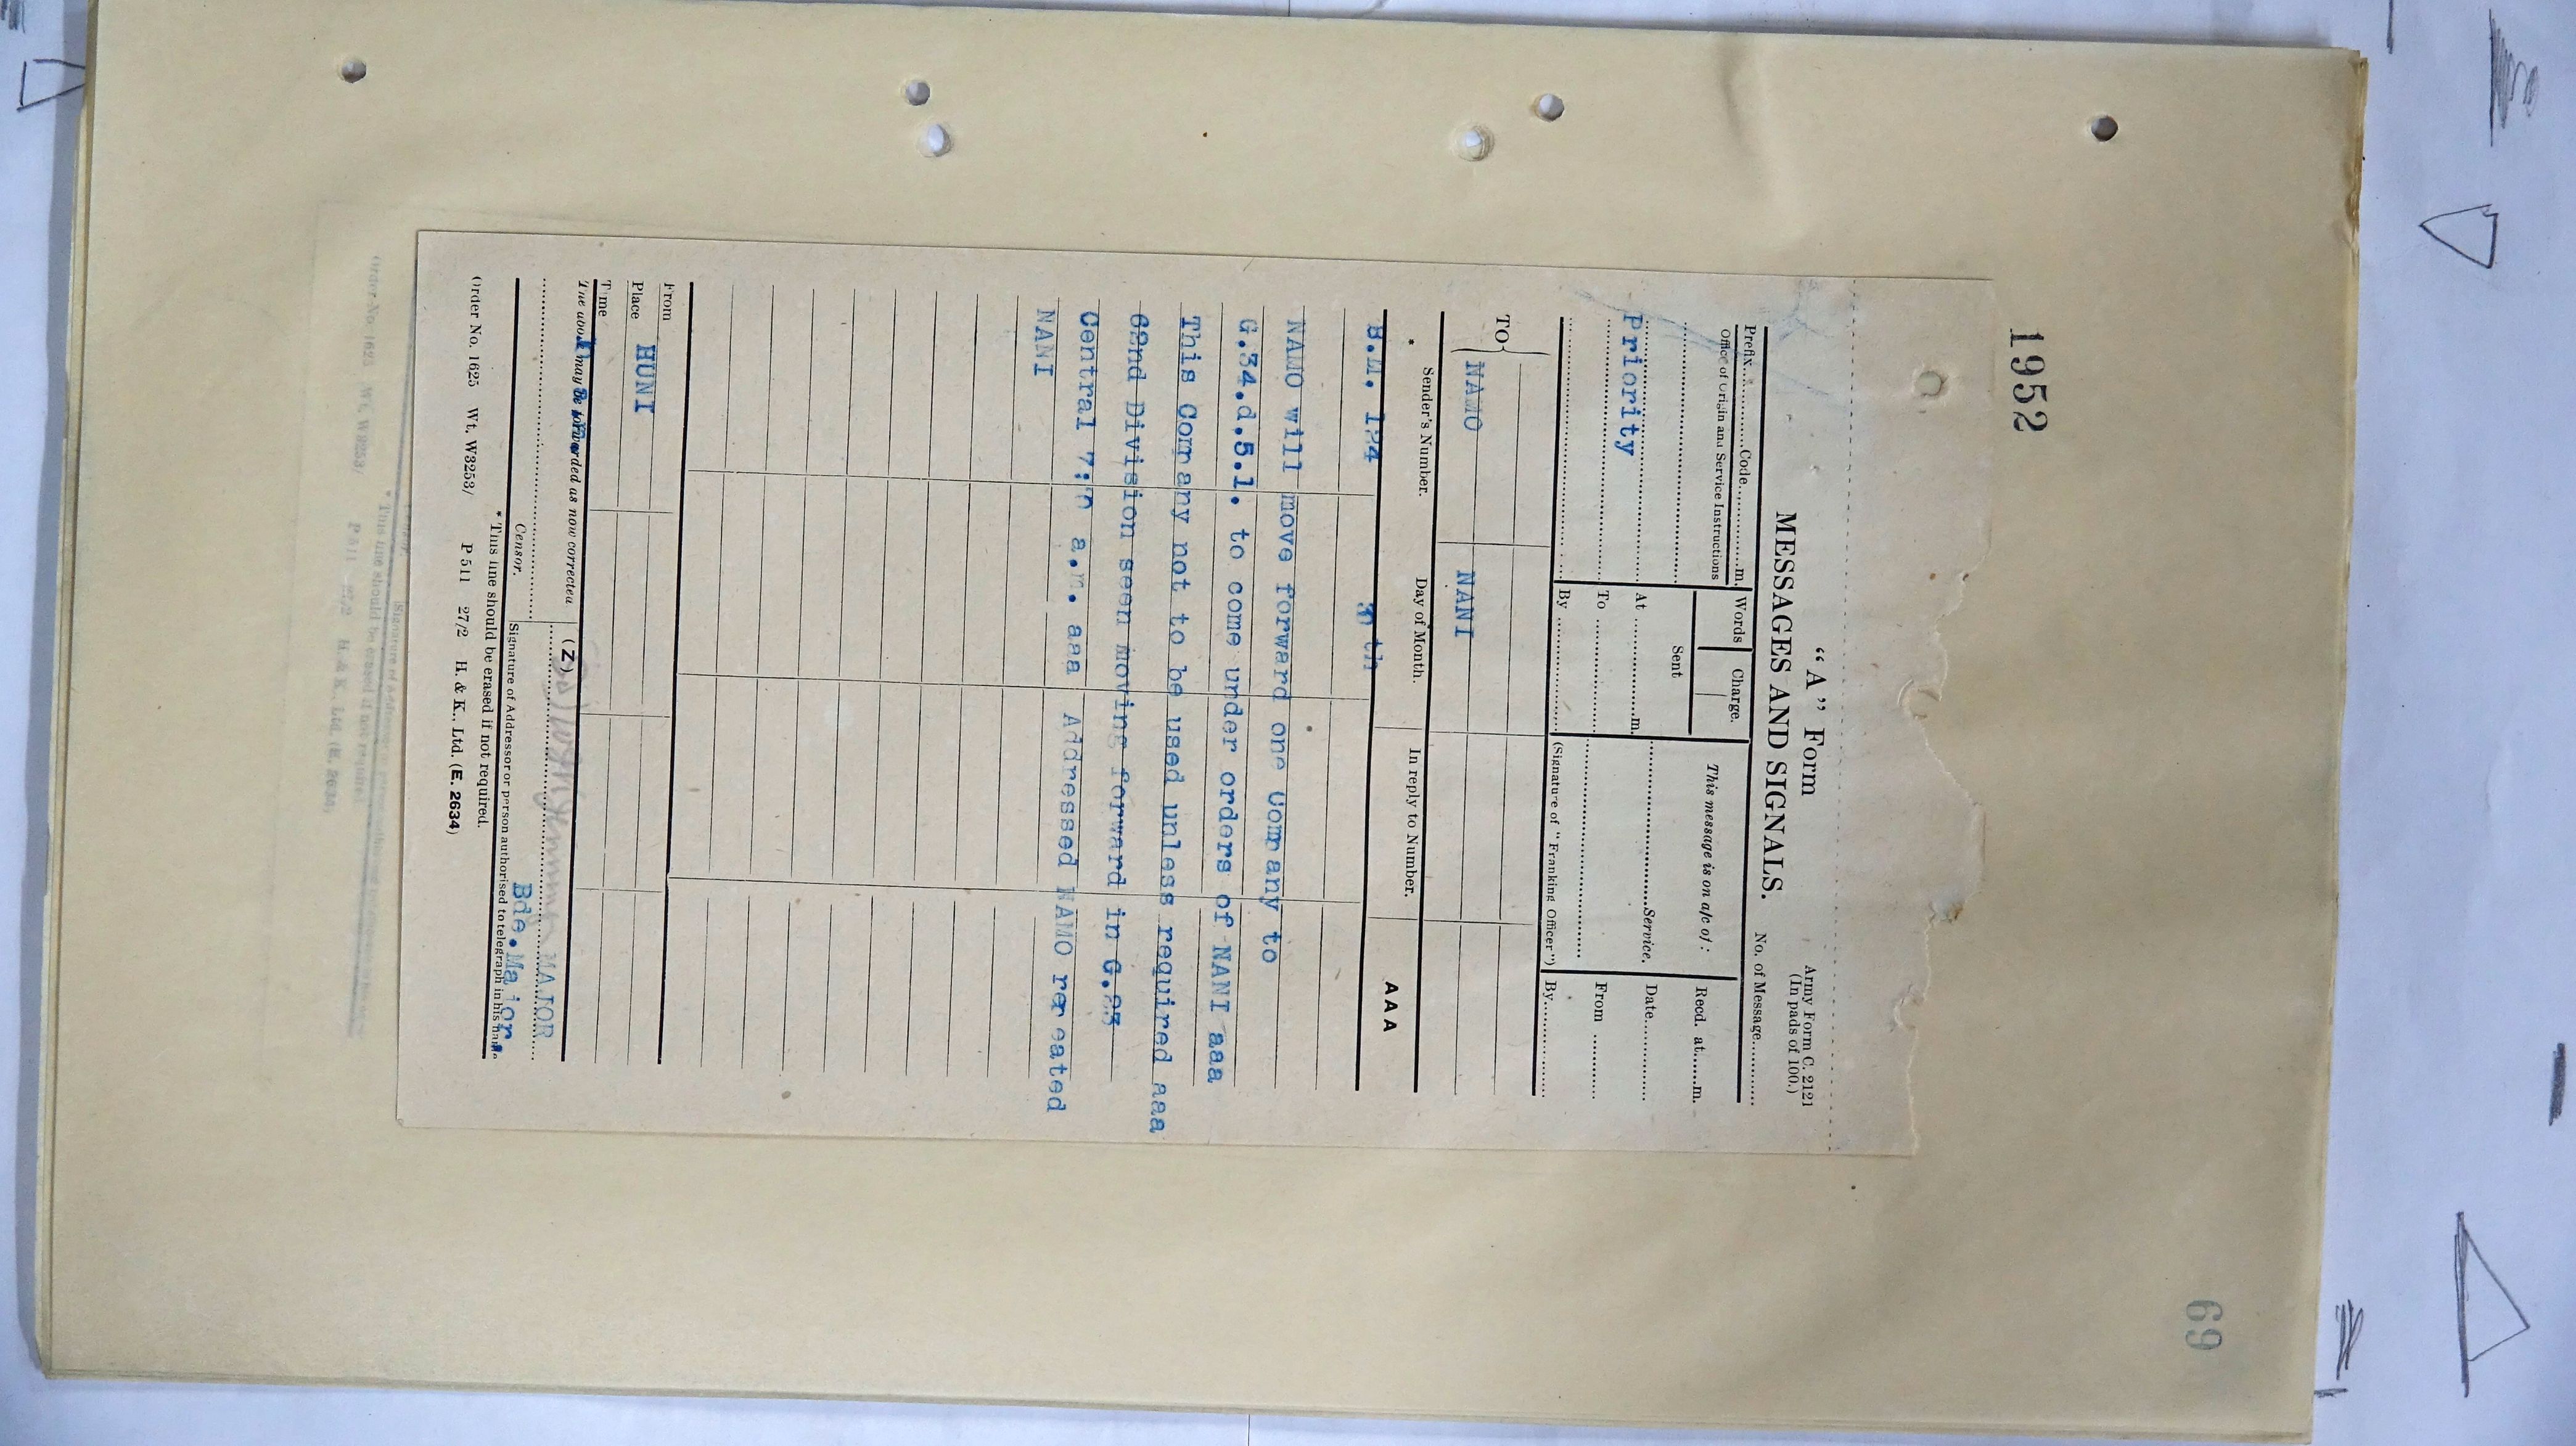 1952
69
"A" Form
Army Form C. 2121
(In pads of 100.)
MESSAGES AND SIGNALS.
No. of Message............
Prefix............Code............m. Words Charge. This message is on a/c of: Recd. at......m.
Office of Origin and Service Instructions
Sent
Date............
Priority
At ............m. ............Service.
To ............ From ............
By ............ (Signature of "Franking Officer") By............
TO NAMO NANI
* Sender's Number. Day of Month. In reply to Number. AAA
B.M. 124 th
NAMO will move forward one Company to
G.34.d.5.1. to come under orders of NANI aaa
This Company not to be used unless required aaa
62nd Division seen moving forward in G.23
Central a.m. aaa Addressed NAMO repeated
NANI
From
Place HUNI
Time
The above may be forwarded as now corrected (Z)
MAJOR
Bde.Major.
Censor. Signature of Addressor or person authorised to telegraph in his name
* This line should be erased if not required.
Order No. 1625 Wt. W3253/ P 511 27/2 H. & K., Ltd. (E. 2634)